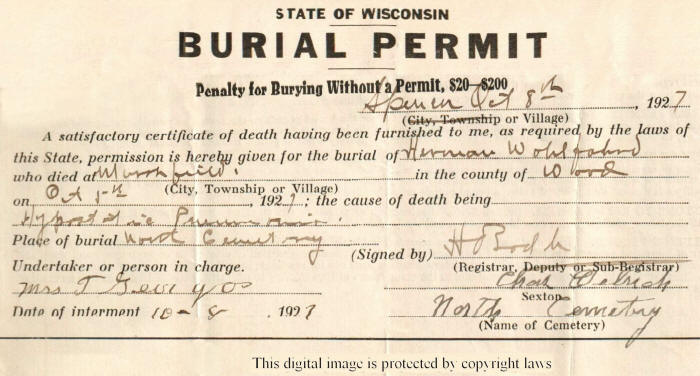 STATE OF WISCONSIN
BURIAL PERMIT
Penalty for Burying Without a Permit, $20-$200
Spencer Oct 8th, 1927
(City, Township or Village)
A satisfactory certificate of death having been furnished to me, as required by the laws of
this State, permission is hereby given for the burial of Herman
who died at Marshfield. in the county of Wood
(City, Township or Village)
on Oct 5th, 1927; the cause of death being
Hypostatic Pneumonia.
Place of burial North Cemetery
(Signed by) H
(Registrar, Deputy or Sub-Registrar)
Undertaker or person in charge.
Mrs T
Chas
Sexton
Date of interment 10-8 1927
North Cemetery
(Name of Cemetery)
This digital image is protected by copyright laws